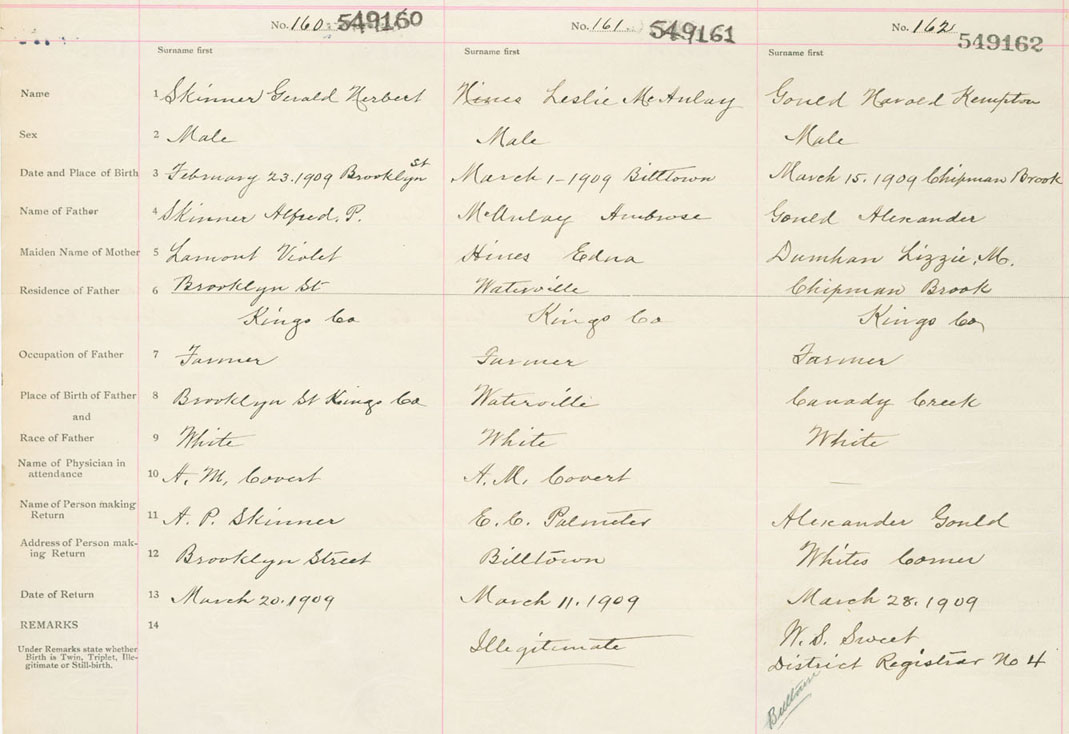 No. 160 549160 No. 161 549161 No. 162 549162
Surname first Surname first Surname first
Name 1 Skinner Gerald Herbert Hines Leslie McAulay Gould Harold Kempton
Sex 2 Male Male Male
Date and Place of Birth 3 February 23. 1909 Brooklyn St March 1 - 1909 Billtown March 15. 1909 Chipman Brook
Name of Father 4 Skinner Alfred. P. McAulay Ambrose Gould Alexander
Maiden Name of Mother 5 Lamont Violet Hines Edna Lizzie. M.
Residence of Father 6 Brooklyn St Waterville Chipman Brook
Kings Co Kings Co Kings Co
Occupation of Father 7 Farmer Farmer Farmer
Place of Birth of Father 8 Brooklyn St Kings Co Waterville Canady Creek
and
Race of Father 9 White White White
Name of Physician in
attendance 10 A. M. Covert A. M. Covert —
Name of Person making
Return 11 A. P. Skinner E. C. Palmeter Alexander Gould
Address of Person mak-
ing Return 12 Brooklyn Street Billtown Whites Corner
Date of Return 13 March 20. 1909 March 11. 1909 March 28. 1909
REMARKS 14 Illegitimate W. S. Sweet
Under Remarks state whether
Birth is Twin, Triplet, Ille-
gitimate or Still-birth.
District Registrar No 4
Billtown